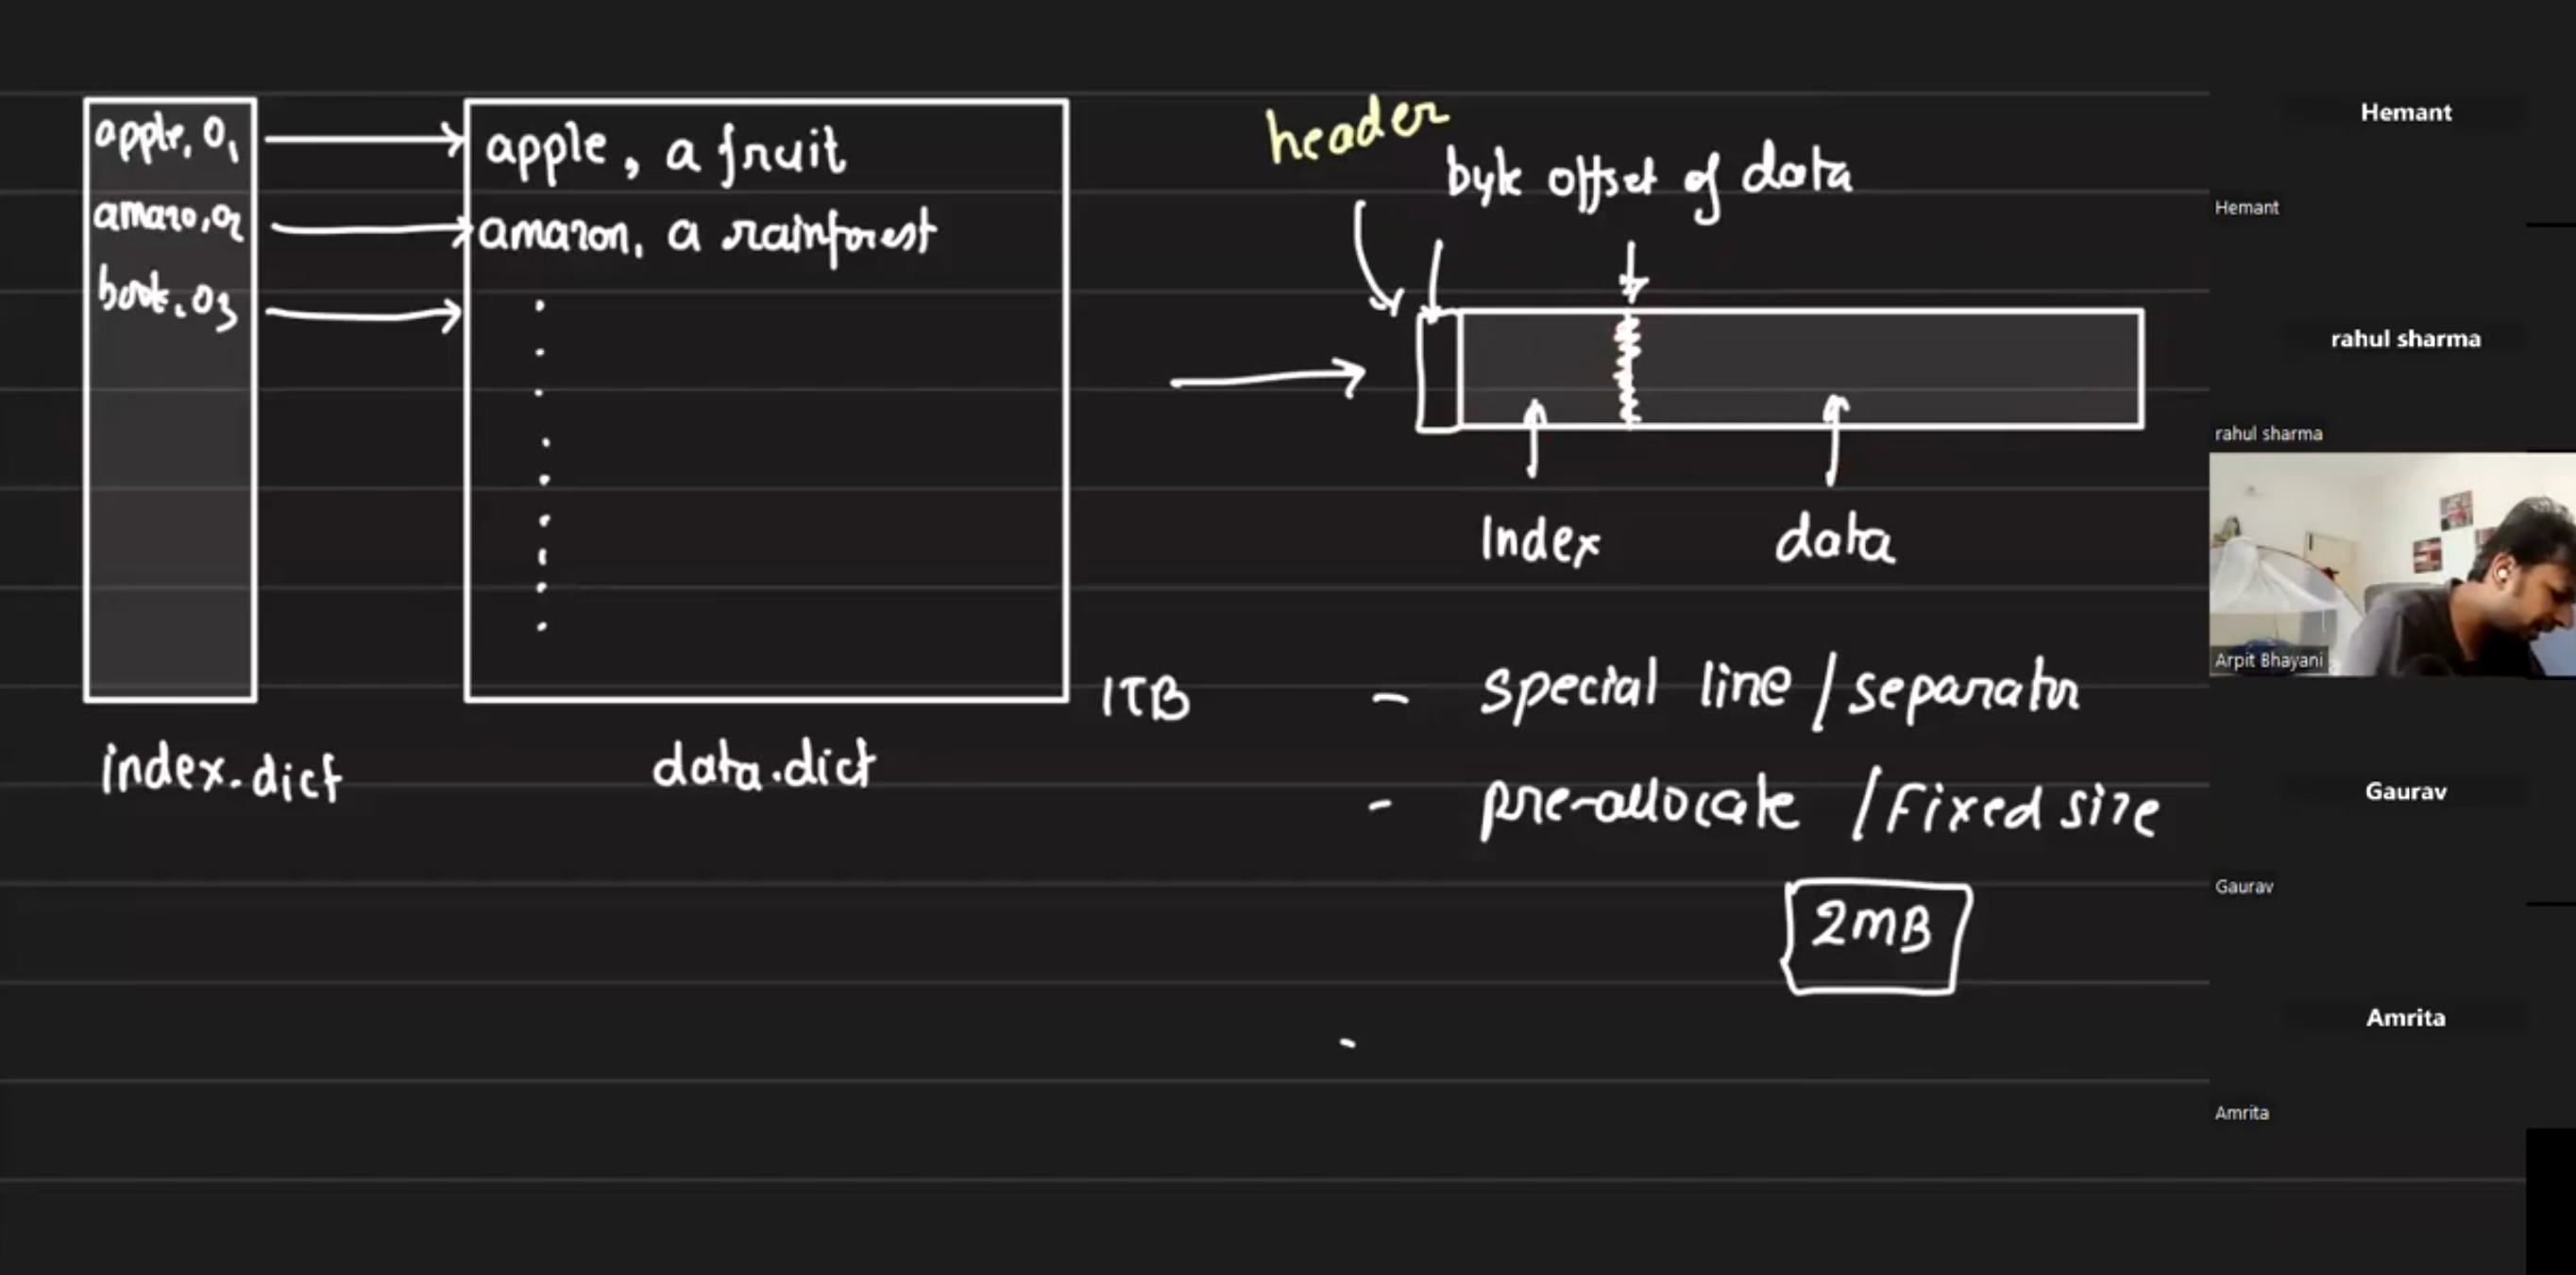 apple, O1
amazo, O2
book, O3
index.dict
apple, a fruit
amazon, a rainforest
1TB
data.dict
header
byte offset of data
Index
data
- special line / separator
- pre-allocate / Fixed size
2MB
-
Hemant
Hemant
rahul sharma
rahul sharma
Arpit Bhayani
Gaurav
Gaurav
Amrita
Amrita